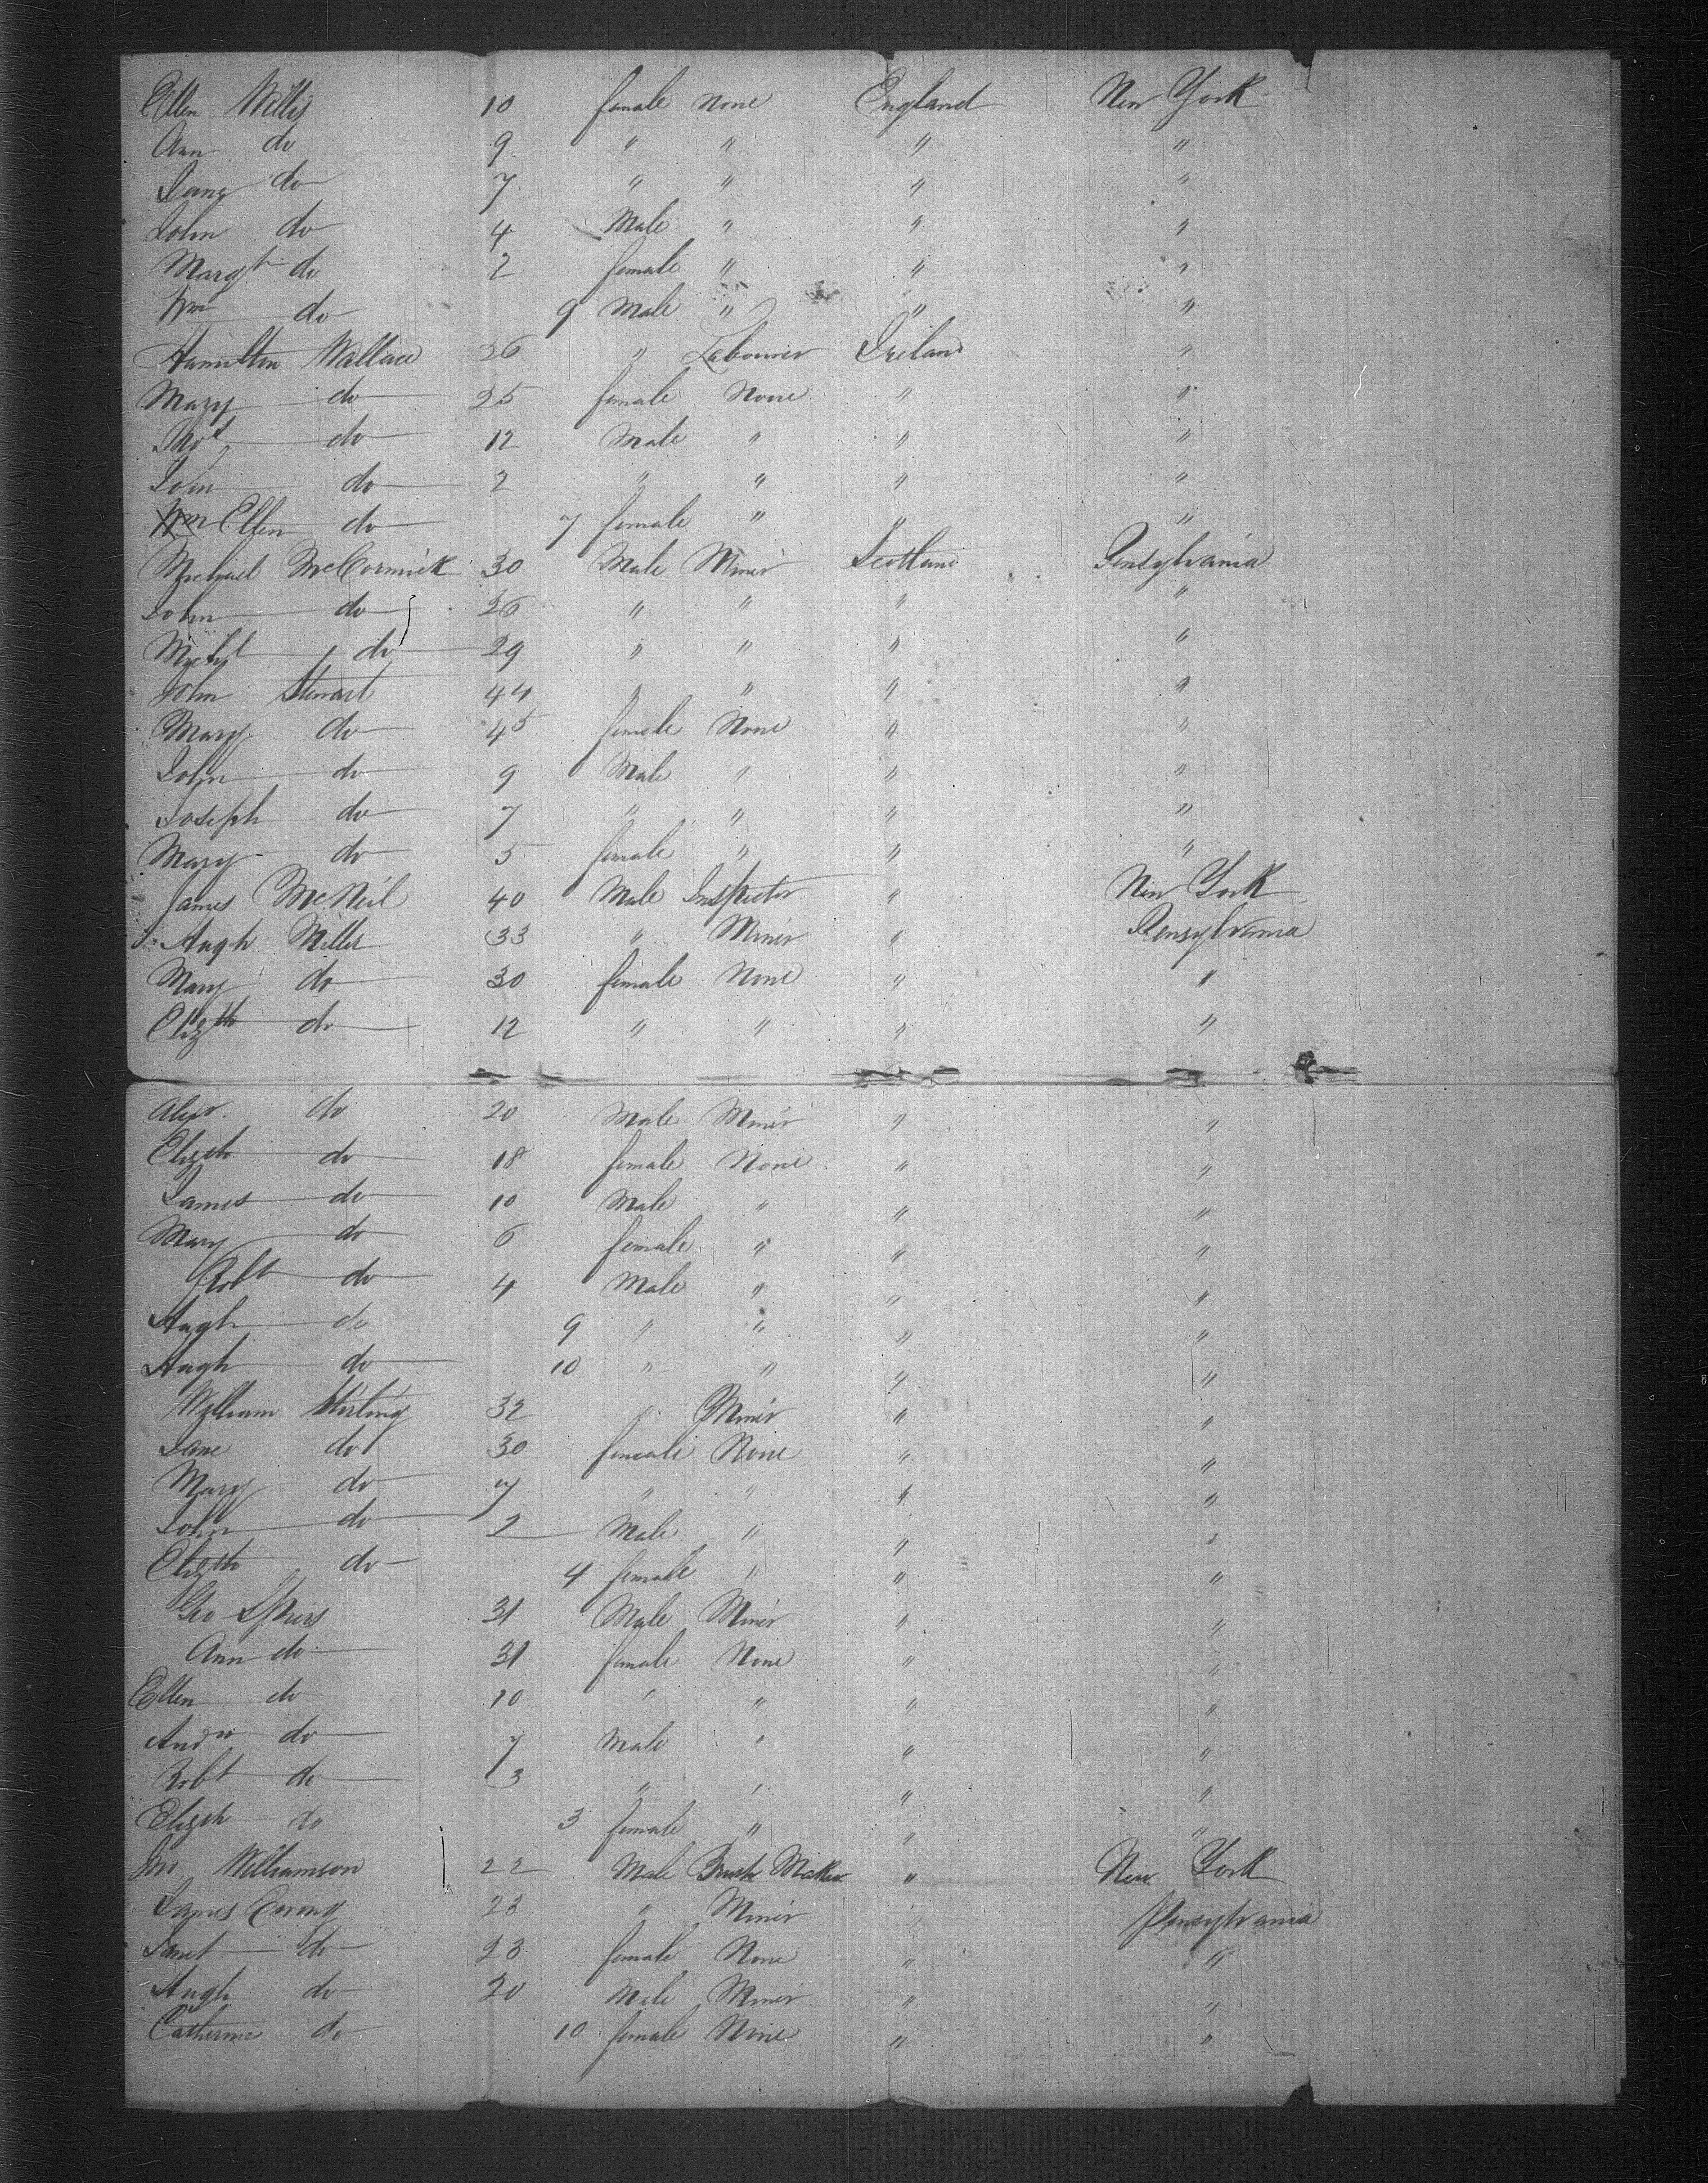 Ellen Willis 10 female None England New York
Ann do 9 " " " "
Jane do 7 " " " "
John do 4 Male " " "
Margt do 2 female " " "
Wm do 9 Male " " "
Hamilton Wallace 26 " Labourer Ireland "
Mary do 25 female None " "
Thos do 12 Male " " "
John do 2 " " " "
Wm Ellen do 7 female " " "
Michael McCormick 30 Male Miner Scotland Pensylvania
John do 26 " " " "
Michl do 29 " " " "
John Stewart 44 " " " "
Mary do 45 female None " "
John do 9 Male " " "
Joseph do 7 " " " "
Mary do 5 female " " "
James McNeil 40 Male Inspector " New York
Hugh Miller 33 " Miner " Pensylvania
Mary do 30 female None " "
Elizth do 12 " " " "
Alexr do 20 Male Miner " "
Elizth do 18 female None " "
James do 10 Male " " "
Mary do 6 female " " "
Robt do 4 Male " " "
Hugh do 9 " " " "
Hugh do 10 " " " "
William Stirling 32 " Miner " "
Jane do 30 female None " "
Mary do 7 " " " "
John do 2 Male " " "
Elizth do 4 female " " "
Geo Spiers 31 Male Miner " "
Ann do 31 female None " "
Ellen do 10 " " " "
Andw do 7 Male " " "
Robt do 3 " " " "
Elizth do 3 female " " "
Jno Williamson 22 Male Brush Maker " New York
James Ewing 23 " Miner " Pensylvania
Janet do 23 female None " "
Hugh do 20 Male Miner " "
Catherine do 10 female None " "